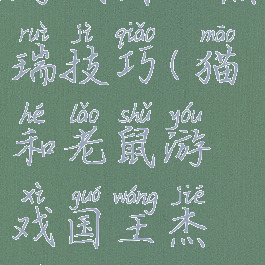 ruì jì qiǎo māo
瑞技巧(猫
hé lǎo shǔ yóu
和老鼠游
xì guó wáng jié
戏国王杰